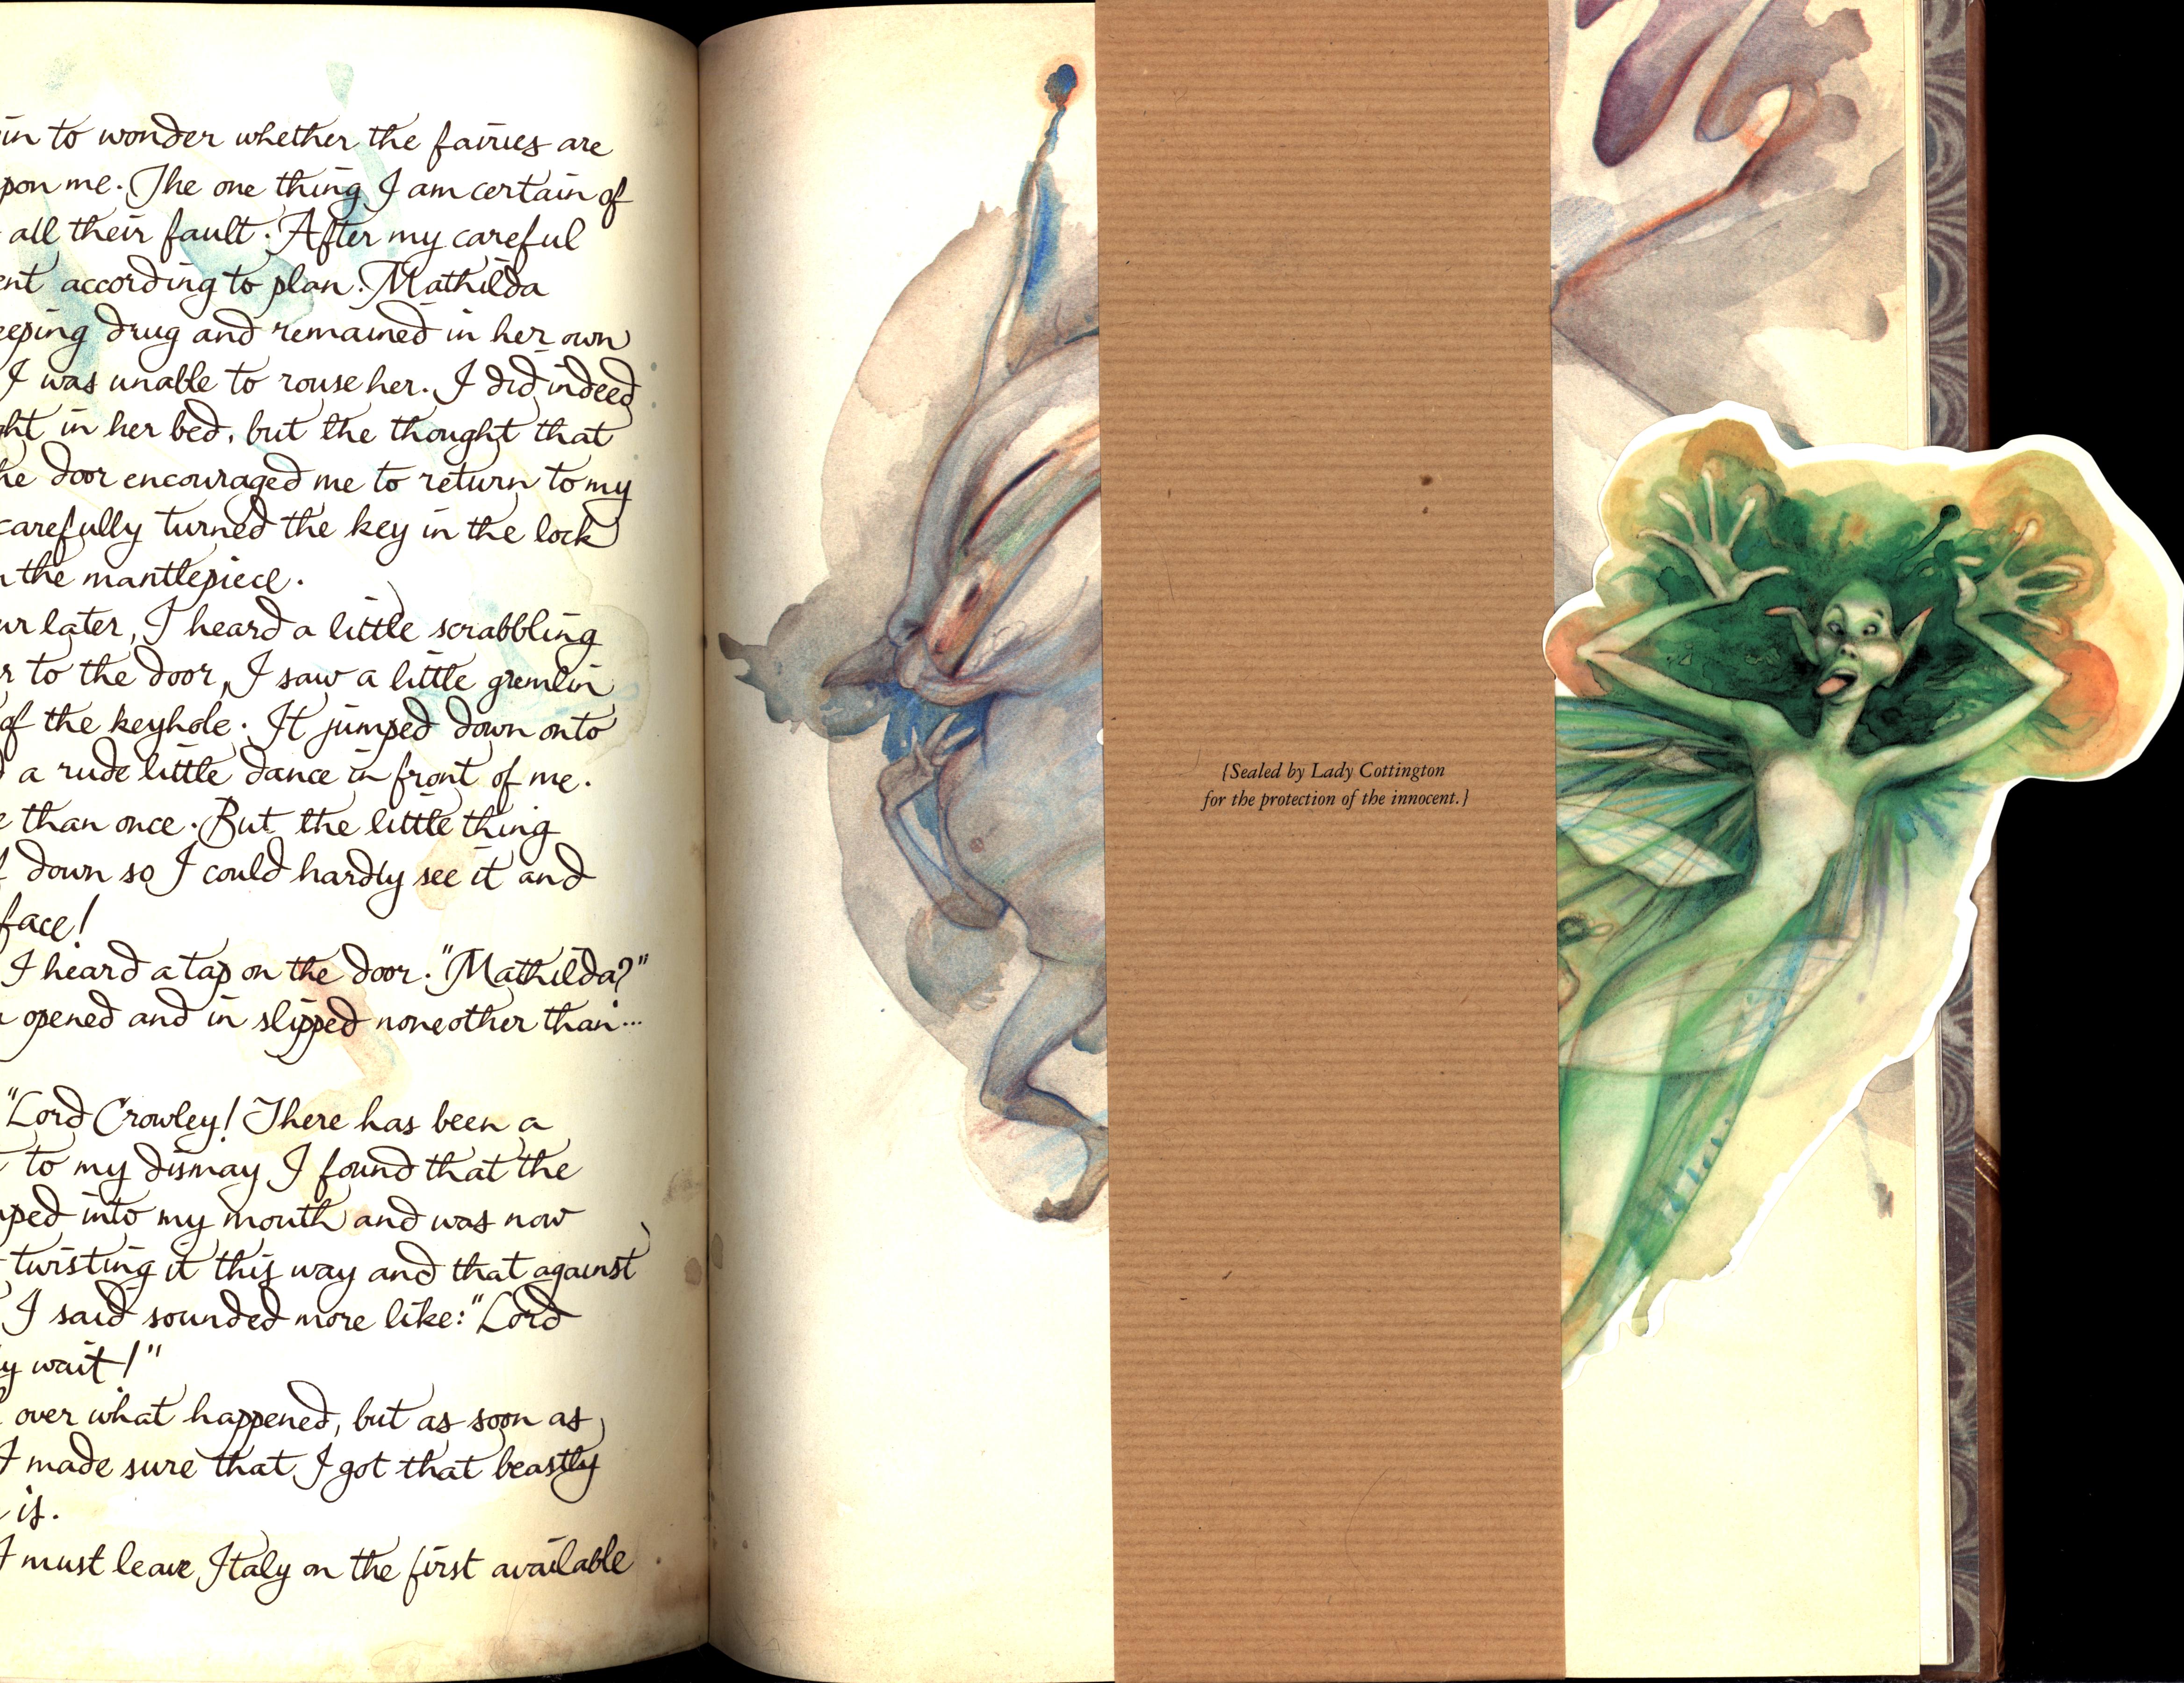 in to wonder whether the fairies are
pon me. The one thing I am certain of
all their fault. After my careful
ent according to plan. Mathilda
eeping drug and remained in her own
I was unable to rouse her. I did indeed
ht in her bed, but the thought that
he door encouraged me to return to my
carefully turned the key in the lock
the mantlepiece.
ur later, I heard a little scrabbling
r to the door, I saw a little gremlin
of the keyhole. It jumped down onto
a rude little dance in front of me.
e than once. But the little thing
f down so I could hardly see it and
face!
I heard a tap on the door. "Mathilda?"
opened and in slipped none other than...
"Lord Crowley! There has been a
to my dismay I found that the
ped into my mouth and was now
twisting it this way and that against
I said sounded more like: "Lord
y wait!"
over what happened, but as soon as
I made sure that I got that beastly
is.
I must leave Italy on the first available
{Sealed by Lady Cottington
for the protection of the innocent.}